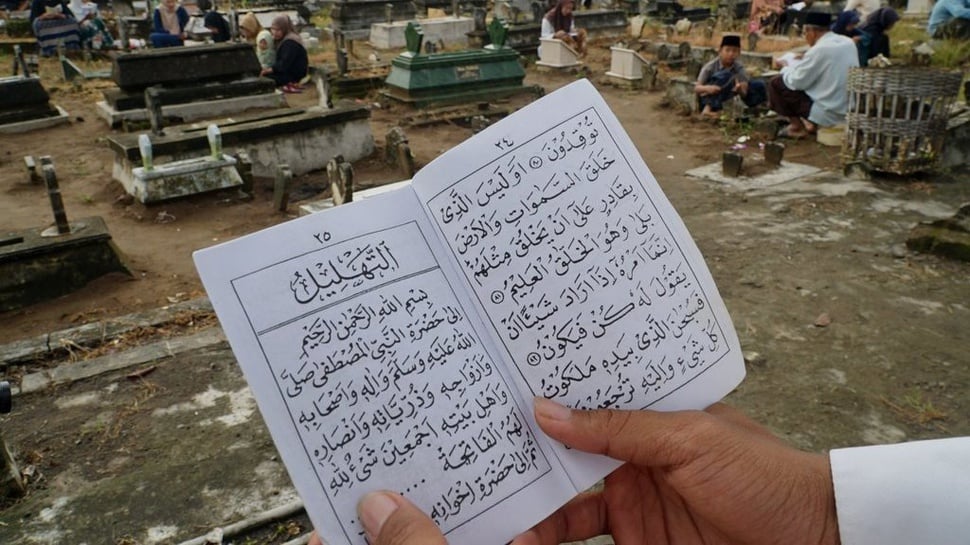 ٢٤
تُوْقِدُوْنَ ۝٨٠ وَلَيْسَ الَّذِيْ
خَلَقَ السَّمٰوَاتِ وَالْاَرْضَ
بِقَادِرٍ عَلٰى اَنْ يَخْلُقَ مِثْلَهُمْ
بَلٰى وَهُوَ الْخَلّٰقُ الْعَلِيْمُ ۝٨١
اِنَّمَا اَمْرُهُ اِذَا اَرَادَ شَيْئًا اَنْ
يَقُوْلَ لَهُ كُنْ فَيَكُوْنُ ۝٨٢
فَسُبْحٰنَ الَّذِيْ بِيَدِهِ مَلَكُوْتُ
كُلِّ شَيْءٍ وَاِلَيْهِ تُرْجَعُوْنَ
٢٥
اَلتَّهْلِيْلُ
بِسْمِ اللهِ الرَّحْمٰنِ الرَّحِيْمِ
اِلٰى حَضْرَةِ النَّبِيِّ الْمُصْطَفٰى صَلَّى
اللهُ عَلَيْهِ وَسَلَّمَ وَاٰلِهِ وَاَصْحَابِهِ
وَاَزْوَاجِهِ وَذُرِّيَّاتِهِ وَاَنْصَارِهِ
وَاَهْلِ بَيْتِهِ اَجْمَعِيْنَ شَيْءٌ لِلّٰهِ
لَهُمُ الْفَاتِحَةُ ....
ثُمَّ اِلٰى حَضْرَةِ اِخْوَانِهِ